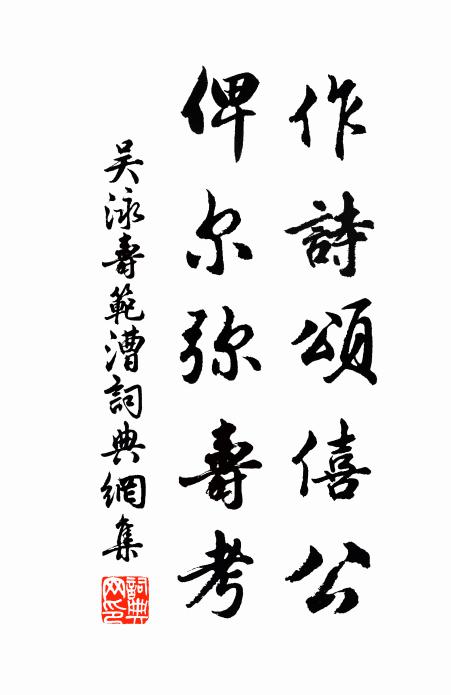 作詩頌僖公
俾尔弥壽考
吴泳壽範漕詞典網集
詞典网印